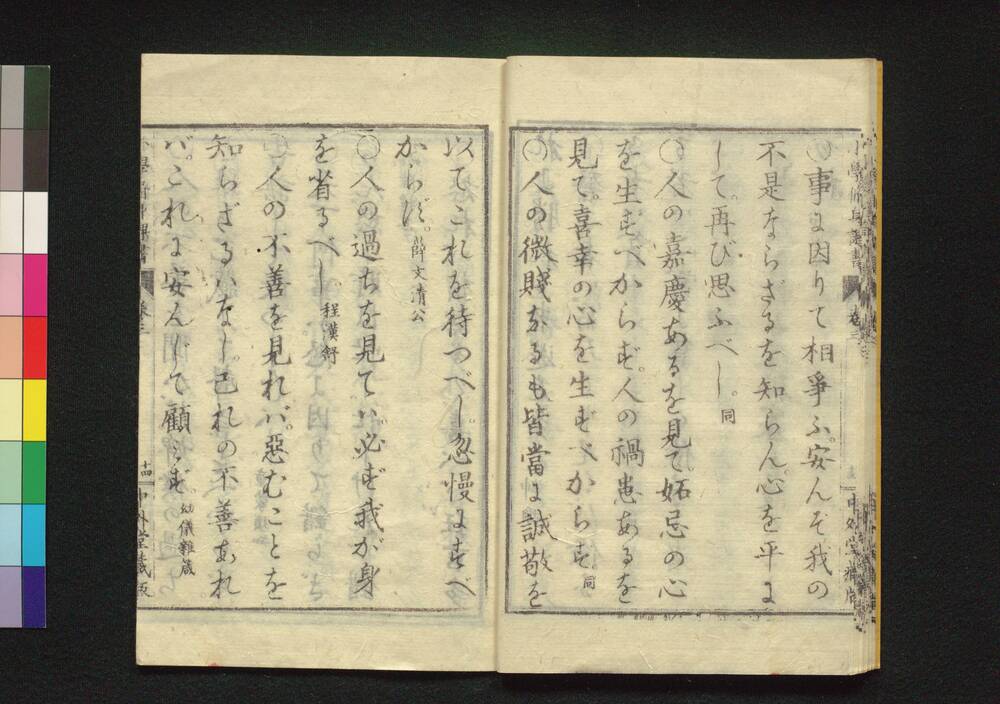 〇事に因りて相爭ふ。安んぞ我の
不是ならざるを知らん。心を平に
して。再び思ふべし。同
〇人の嘉慶あるを見て。妬忌の心
を生ずべからず。人の禍患あるを
見て。喜幸の心を生ずべからず。同
〇人の微賤なるも皆當に誠敬を
以てこれを待つべし。忽慢にすべ
からず。薛文清公
〇人の過ちを見てハ。必ず我が身
を省るべし。程漢舒
〇人の不善を見れバ。惡むことを
知らざるハなし。己れの不善あれ
バ。これに安んじて顧ミず。幼儀雜箴
小學修身叢書 卷三
十四 中外堂藏版